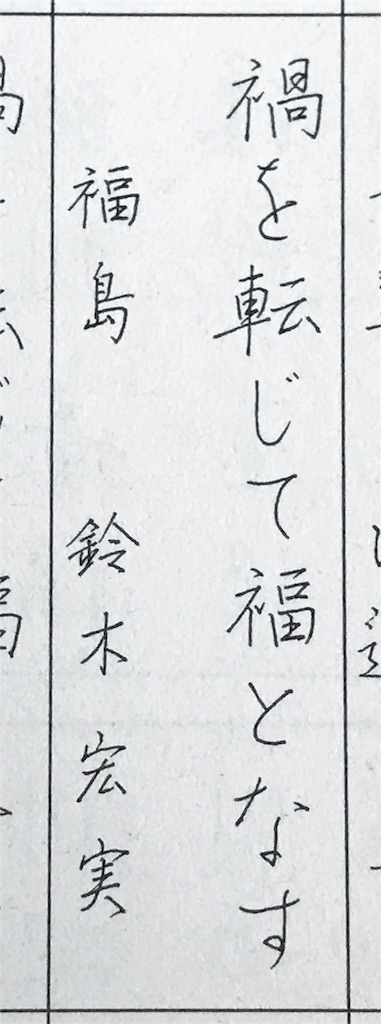 禍を転じて福となす
福島 鈴木宏実